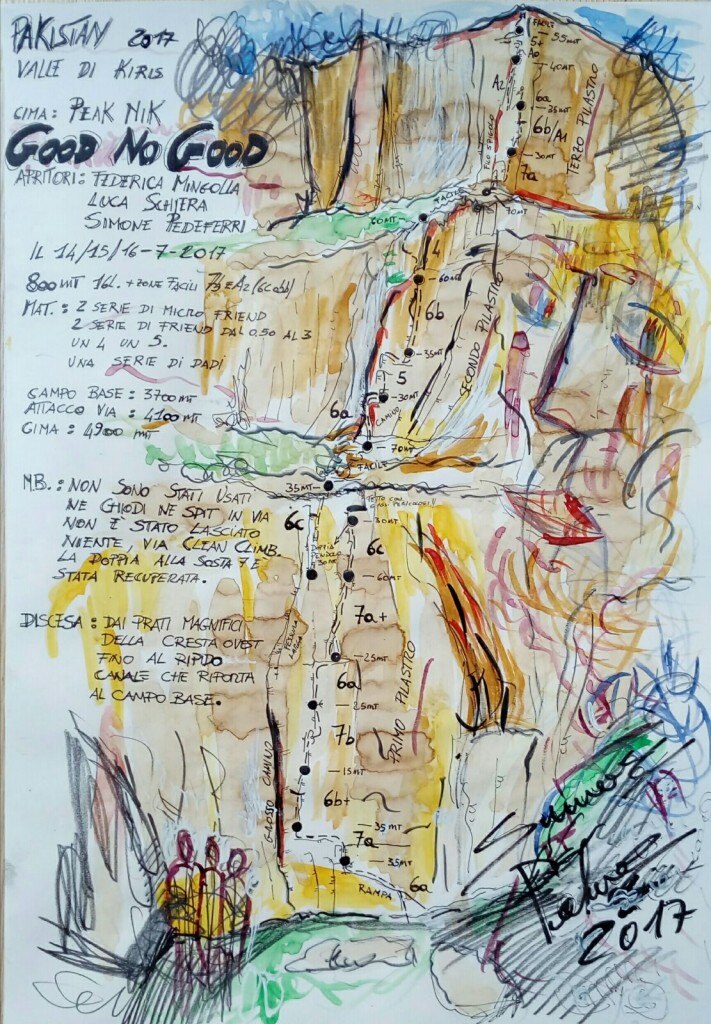 PAKISTAN 2017
VALLE DI KIRIS
CIMA: PEAK NIK
GOOD NO GOOD
APRITORI: FEDERICA MINGOLLA
LUCA SCHIERA
SIMONE PEDEFERRI
IL 14/15/16-7-2017
800MT 16L. + ZONE FACILI 7b E A2 (6c obbl)
MAT.: 2 SERIE DI MICRO FRIEND
2 SERIE DI FRIEND DAL 0,50 AL 3
UN 4 UN 5.
UNA SERIE DI DADI
CAMPO BASE: 3700 MT
ATTACCO VIA: 4100 MT
CIMA: 4900 MT
N.B.: NON SONO STATI USATI
NE CHIODI NE SPIT IN VIA
NON È STATO LASCIATO
NIENTE, VIA CLEAN CLIMB.
LA DOPPIA ALLA SOSTA 7 È
STATA RECUPERATA.
DISCESA: DAI PRATI MAGNIFICI
DELLA CRESTA OVEST
FINO AL RIPIDO
CANALE CHE RIPORTA
AL CAMPO BASE.
FACILE
55MT
5+
A0
40MT
A2
6a
35MT
6b/A1
30MT
7a
TERZO PILASTRO
FILO SPIGOLO
FACILE
70MT
60MT
4
60MT
6b
35MT
SECONDO PILASTRO
5
30MT
CAMINO
6a
70MT
FACILE
35MT
TETTO CON
PERICOLOSI!!
6c
30MT
DOPPIA
PENDOLO
30MT
6c
60MT
7a+
25MT
6a
25MT
PRIMO PILASTRO
7b
15MT
GROSSO CAMINO
6b+
35MT
7a
35MT
6a
RAMPA
Simone
2017